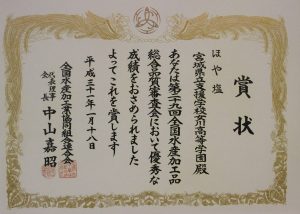 賞状
ほや塩
宮城県立支援学校女川高等学園 殿
あなたは第二十九回全国水産加工品
総合品質審査会において優秀な
成績をおさめられました
よってこれを賞します
平成三十一年一月十八日
全国水産加工業協同組合連合会
代表理事
会長 中山嘉昭